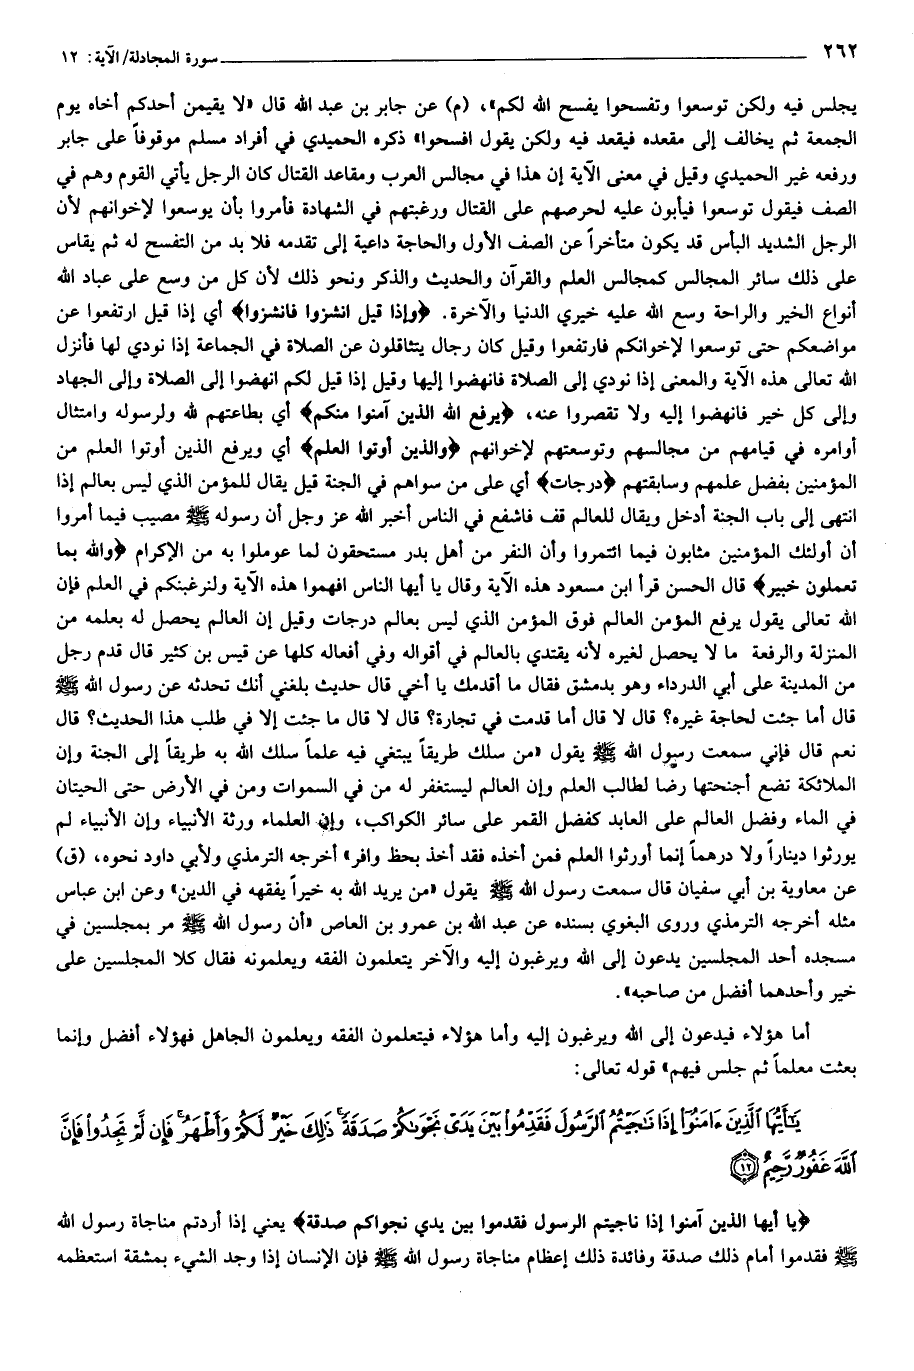 ٢٦٢ سورة المجادلة/الآية: ١٢
يجلس فيه ولكن توسعوا وتفسحوا يفسح الله لكم»، (م) عن جابر بن عبد الله قال «لا يقيمن أحدكم أخاه يوم
الجمعة ثم يخالف إلى مقعده فيقعد فيه ولكن يقول افسحوا» ذكره الحميدي في أفراد مسلم موقوفاً على جابر
ورفعه غير الحميدي وقيل في معنى الآية إن هذا في مجالس العرب ومقاعد القتال كان الرجل يأتي القوم وهم في
الصف فيقول توسعوا فيأبون عليه لحرصهم على القتال ورغبتهم في الشهادة فأمروا بأن يوسعوا لإخوانهم لأن
الرجل الشديد البأس قد يكون متأخراً عن الصف الأول والحاجة داعية إلى تقدمه فلا بد من التفسح له ثم يقاس
على ذلك سائر المجالس كمجالس العلم والقرآن والحديث والذكر ونحو ذلك لأن كل من وسع على عباد الله
أنواع الخير والراحة وسع الله عليه خيري الدنيا والآخرة. ﴿وإذا قيل انشزوا فانشزوا﴾ أي إذا قيل ارتفعوا عن
مواضعكم حتى توسعوا لإخوانكم فارتفعوا وقيل كان رجال يتثاقلون عن الصلاة في الجماعة إذا نودي لها فأنزل
الله تعالى هذه الآية والمعنى إذا نودي إلى الصلاة فانهضوا إليها وقيل إذا قيل لكم انهضوا إلى الصلاة وإلى الجهاد
وإلى كل خير فانهضوا إليه ولا تقصروا عنه، ﴿يرفع الله الذين آمنوا منكم﴾ أي بطاعتهم لله ولرسوله وامتثال
أوامره في قيامهم من مجالسهم وتوسعتهم لإخوانهم ﴿والذين أوتوا العلم﴾ أي ويرفع الذين أوتوا العلم من
المؤمنين بفضل علمهم وسابقتهم ﴿درجات﴾ أي على من سواهم في الجنة قيل يقال للمؤمن الذي ليس بعالم إذا
انتهى إلى باب الجنة أدخل ويقال للعالم قف فاشفع في الناس أخبر الله عز وجل أن رسوله ﷺ مصيب فيما أمروا
أن أولئك المؤمنين مثابون فيما ائتمروا وأن النفر من أهل بدر مستحقون لما عوملوا به من الإكرام ﴿والله بما
تعملون خبير﴾ قال الحسن قرأ ابن مسعود هذه الآية وقال يا أيها الناس افهموا هذه الآية ولنرغبنكم في العلم فإن
الله تعالى يقول يرفع المؤمن العالم فوق المؤمن الذي ليس بعالم درجات وقيل إن العالم يحصل له بعلمه من
المنزلة والرفعة ما لا يحصل لغيره لأنه يقتدي بالعالم في أقواله وفي أفعاله كلها عن قيس بن كثير قال قدم رجل
من المدينة على أبي الدرداء وهو بدمشق فقال ما أقدمك يا أخي قال حديث بلغني أنك تحدثه عن رسول الله ﷺ
قال أما جئت لحاجة غيره؟ قال لا قال أما قدمت في تجارة؟ قال لا قال ما جئت إلا في طلب هذا الحديث؟ قال
نعم قال فإني سمعت رسول الله ﷺ يقول «من سلك طريقاً يبتغي فيه علماً سلك الله به طريقاً إلى الجنة وإن
الملائكة تضع أجنحتها رضا لطالب العلم وإن العالم ليستغفر له من في السموات ومن في الأرض حتى الحيتان
في الماء وفضل العالم على العابد كفضل القمر على سائر الكواكب، وإن العلماء ورثة الأنبياء وإن الأنبياء لم
يورثوا ديناراً ولا درهماً إنما أورثوا العلم فمن أخذه فقد أخذ بحظ وافر» أخرجه الترمذي ولأبي داود نحوه، (ق)
عن معاوية بن أبي سفيان قال سمعت رسول الله ﷺ يقول «من يريد الله به خيراً يفقهه في الدين» وعن ابن عباس
مثله أخرجه الترمذي وروى البغوي بسنده عن عبد الله بن عمرو بن العاص «أن رسول الله ﷺ مر بمجلسين في
مسجده أحد المجلسين يدعون إلى الله ويرغبون إليه والآخر يتعلمون الفقه ويعلمونه فقال كلا المجلسين على
خير وأحدهما أفضل من صاحبه».
أما هؤلاء فيدعون إلى الله ويرغبون إليه وأما هؤلاء فيتعلمون الفقه ويعلمون الجاهل فهؤلاء أفضل وإنما
بعثت معلماً ثم جلس فيهم» قوله تعالى:
يَٰٓأَيُّهَا ٱلَّذِينَ ءَامَنُوٓاْ إِذَا نَٰجَيْتُمُ ٱلرَّسُولَ فَقَدِّمُواْ بَيْنَ يَدَىْ نَجْوَىٰكُمْ صَدَقَةً ۚ ذَٰلِكَ خَيْرٌ لَّكُمْ وَأَطْهَرُ ۚ فَإِن لَّمْ تَجِدُواْ فَإِنَّ
ٱللَّهَ غَفُورٌ رَّحِيمٌ ١٢
﴿يا أيها الذين آمنوا إذا ناجيتم الرسول فقدموا بين يدي نجواكم صدقة﴾ يعني إذا أردتم مناجاة رسول الله
ﷺ فقدموا أمام ذلك صدقة وفائدة ذلك إعظام مناجاة رسول الله ﷺ فإن الإنسان إذا وجد الشيء بمشقة استعظمه